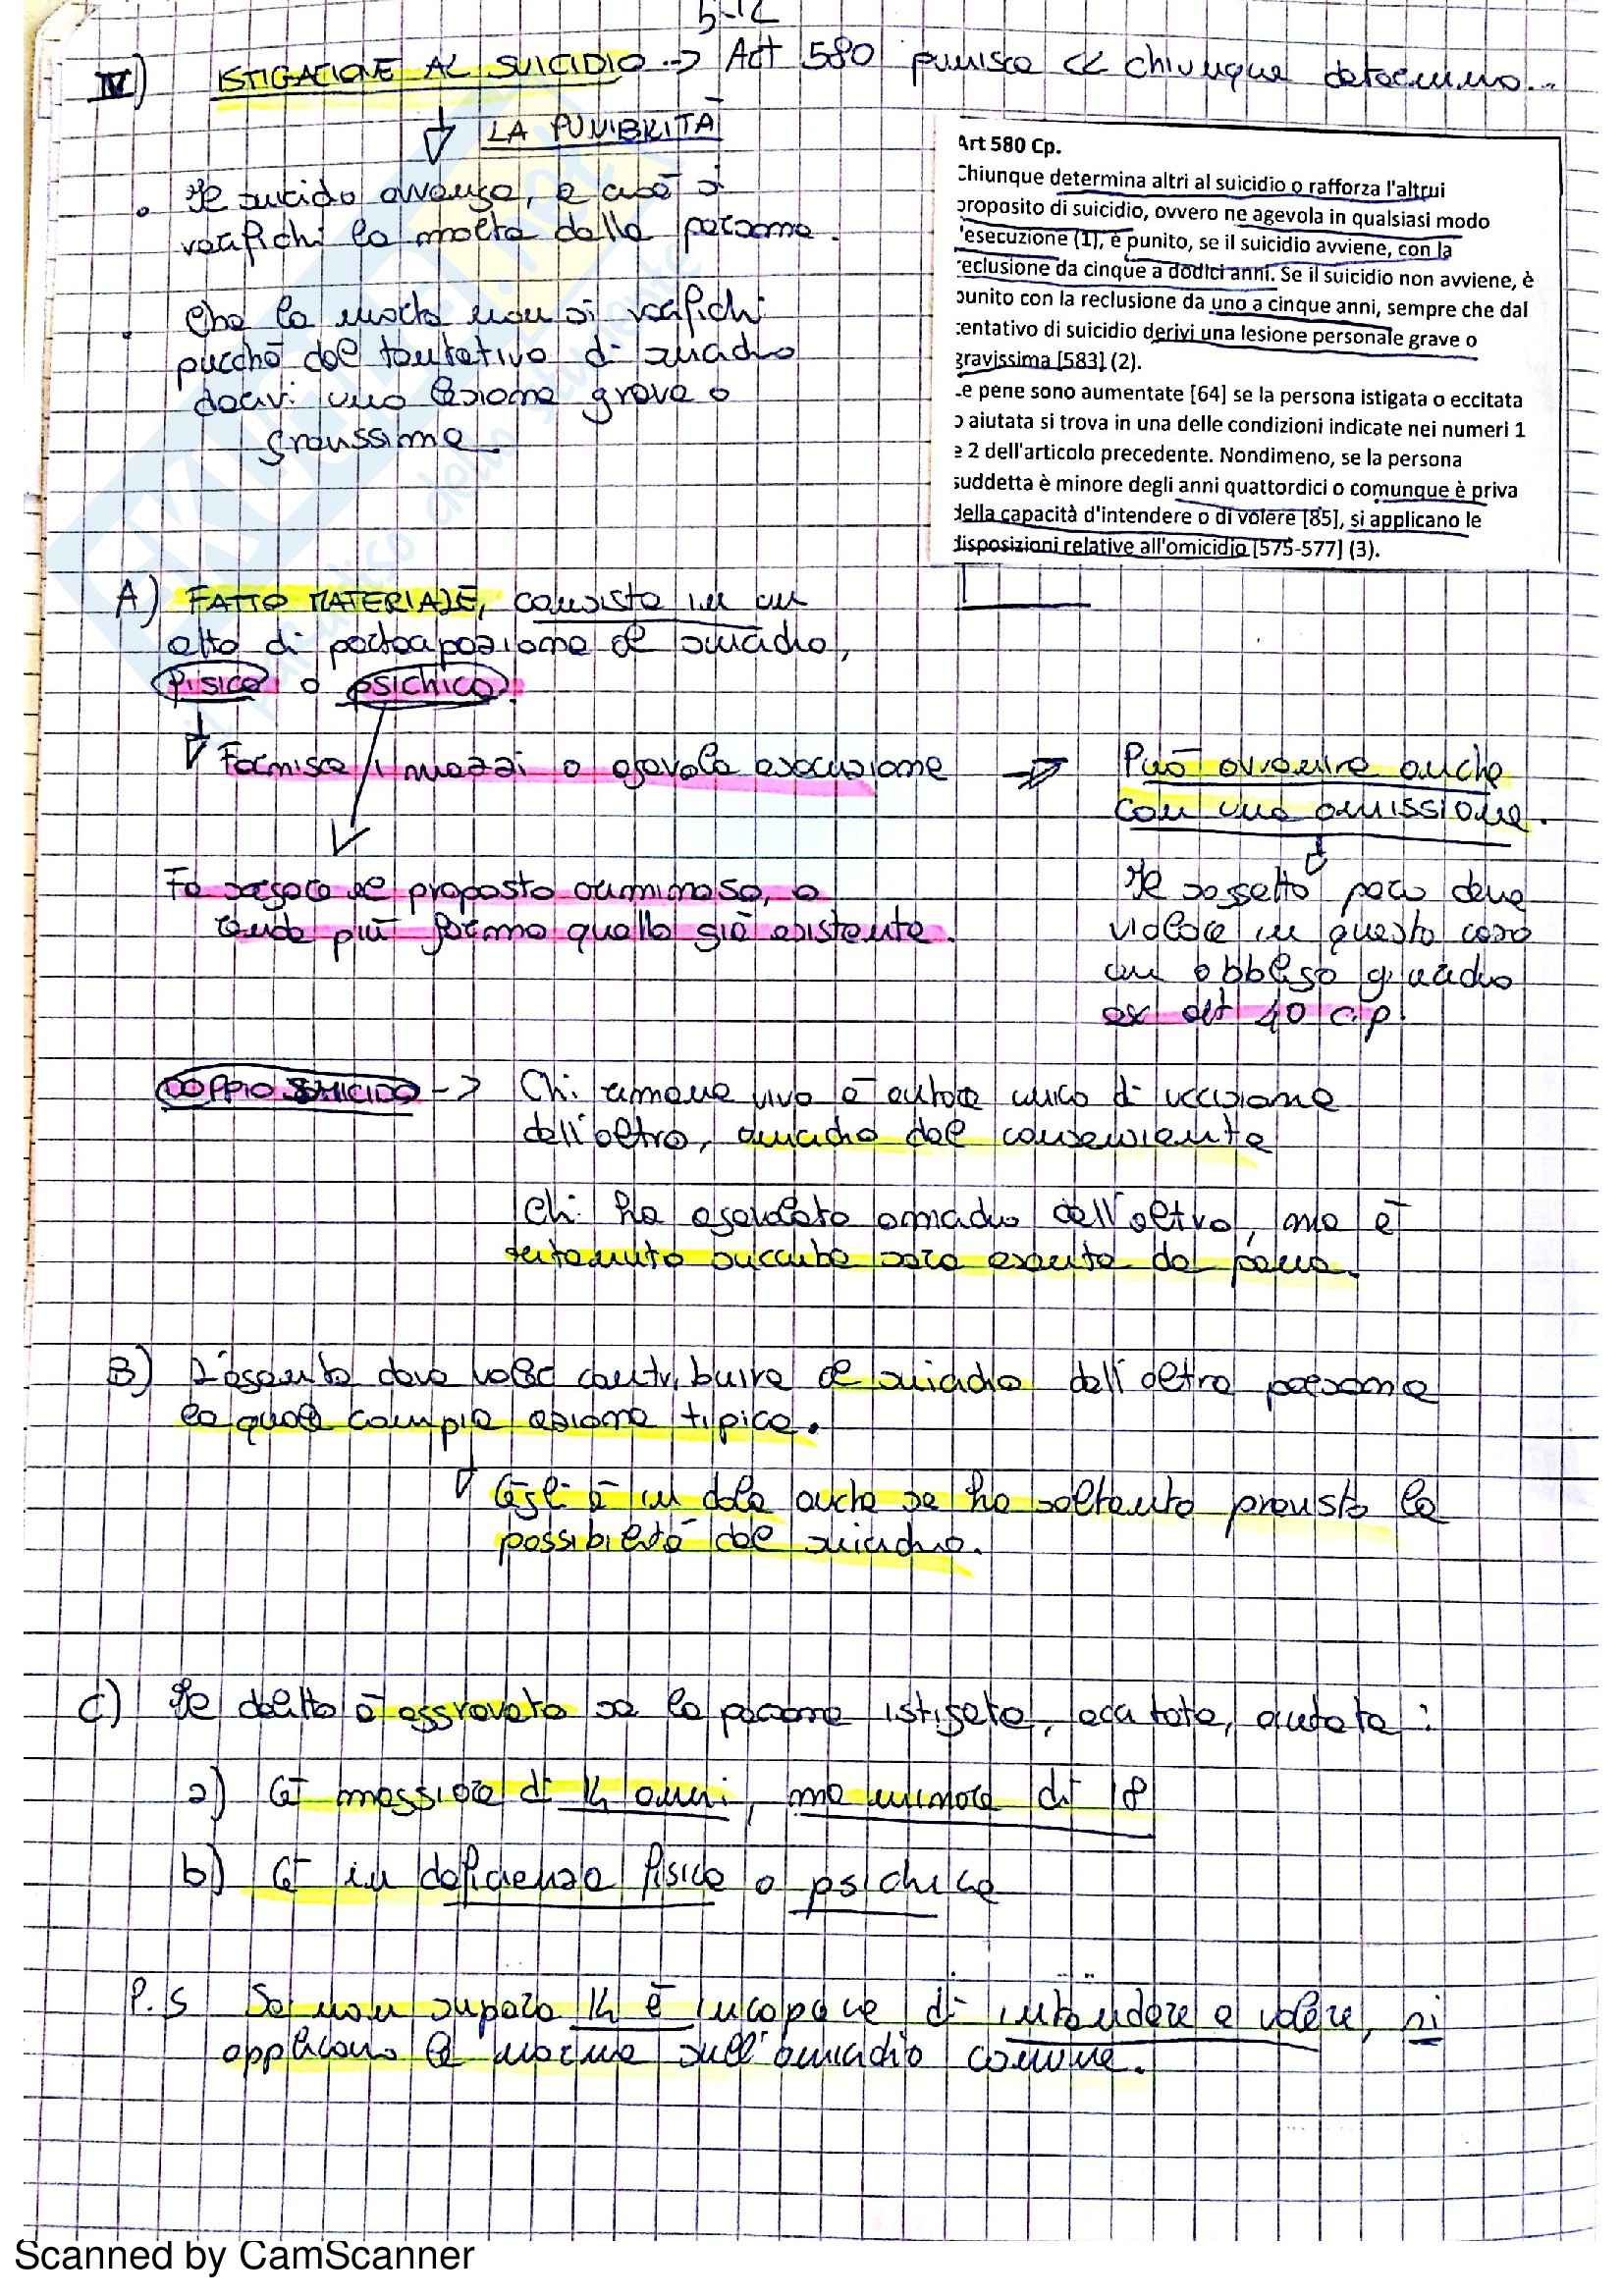 5-12
IV) ISTIGAZIONE AL SUICIDIO -> Art 580 punisce << chiunque determina...
LA PUNIBILITÀ
• Il suicidio avvenga, e cioè si
verifichi la morte della persona.
• Che la morte non si verifichi
purché dal tentativo di suicidio
derivi una lesione grave o
gravissima.
Art 580 Cp.
Chiunque determina altri al suicidio o rafforza l'altrui
proposito di suicidio, ovvero ne agevola in qualsiasi modo
l'esecuzione (1), è punito, se il suicidio avviene, con la
reclusione da cinque a dodici anni. Se il suicidio non avviene, è
punito con la reclusione da uno a cinque anni, sempre che dal
tentativo di suicidio derivi una lesione personale grave o
gravissima [583] (2).
Le pene sono aumentate [64] se la persona istigata o eccitata
o aiutata si trova in una delle condizioni indicate nei numeri 1
e 2 dell'articolo precedente. Nondimeno, se la persona
suddetta è minore degli anni quattordici o comunque è priva
della capacità d'intendere o di volere [85], si applicano le
disposizioni relative all'omicidio [575-577] (3).
A) FATTO MATERIALE, consiste in un
atto di partecipazione al suicidio,
fisica o psichica.
Fornisce i mezzi o agevola esecuzione => Può avvenire anche
con una omissione.
Fa sorgere il proposito criminoso, o
rende più fermo quello già esistente.
Il soggetto però deve
violare in questo caso
un obbligo giuridico
ex art 40 c.p.
DOPPIO SUICIDIO -> Chi rimane vivo è autore unico di uccisione
dell'altro, omicidio del consenziente
Chi ha agevolato omicidio dell'altro, ma è
rimasto succube sarà esente da pena.
B) L'agente deve voler contribuire al suicidio dell'altra persona
la quale compie azione tipica.
Egli è in dolo anche se ha soltanto previsto la
possibilità del suicidio.
C) Il delitto è aggravato se la persona istigata, eccitata, aiutata:
a) È maggiore di 14 anni, ma minore di 18
b) È in deficienza fisica o psichica
P.S Se non supera 14 è incapace di intendere e volere, si
applicano le norme sull'omicidio comune.
Scanned by CamScanner